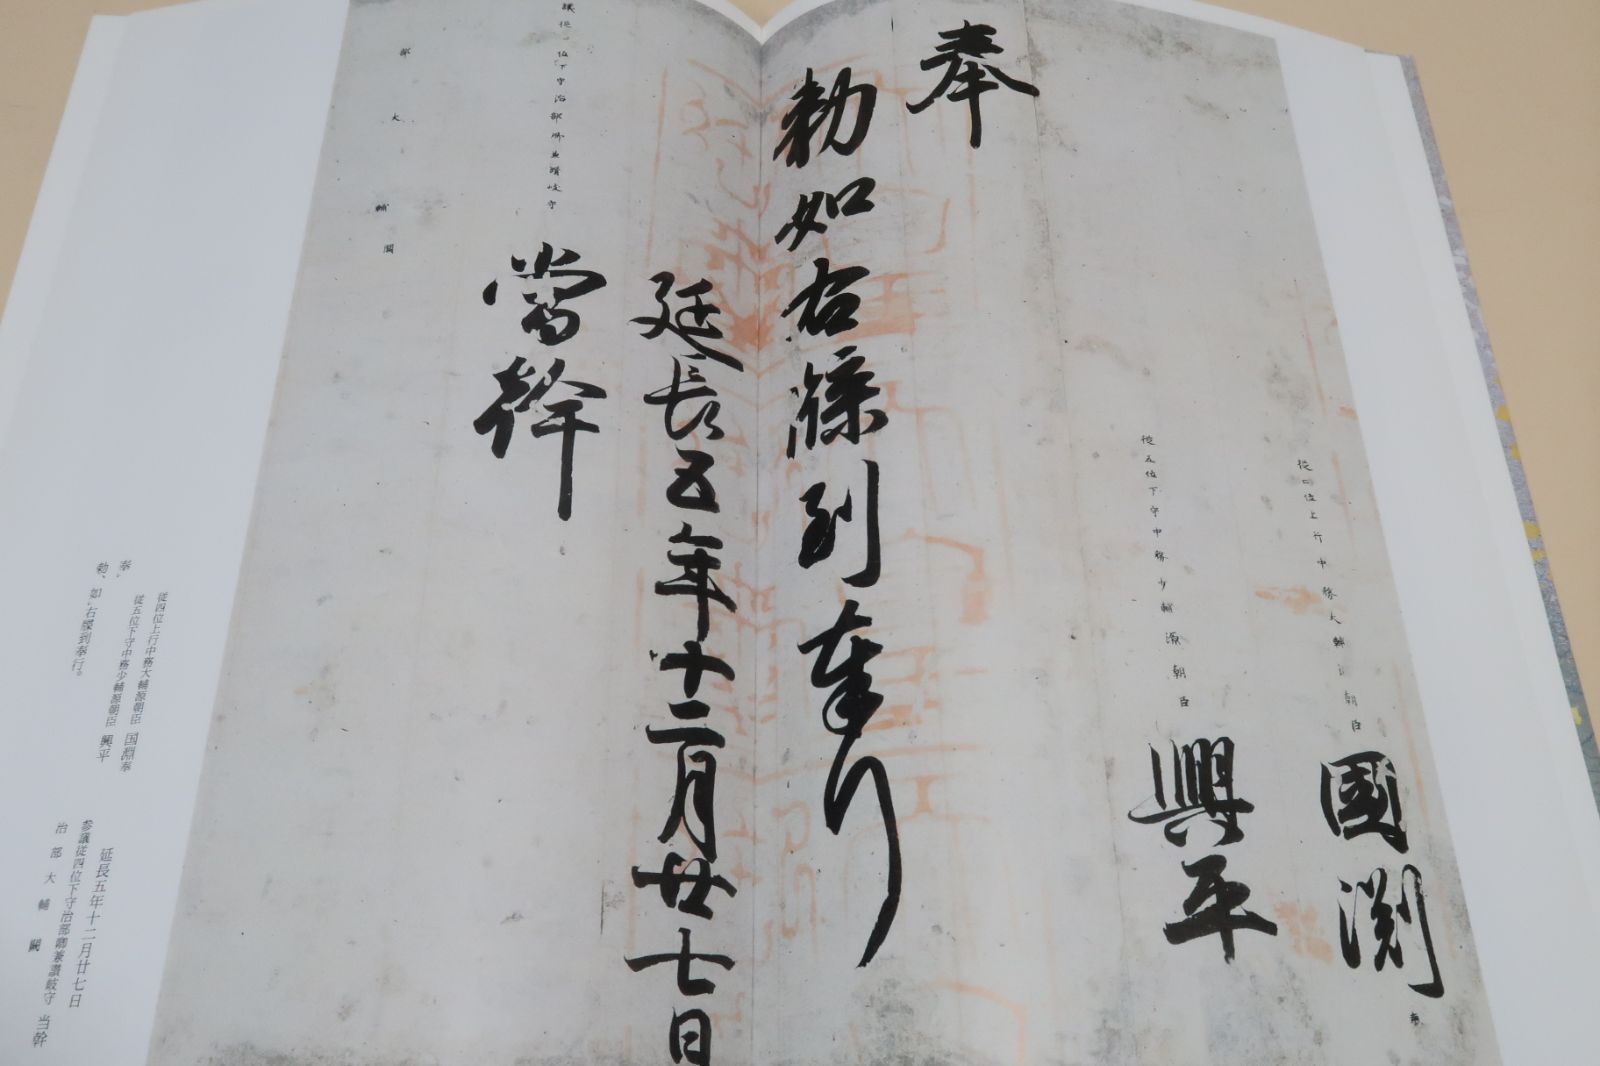 従四位上行中務大輔源朝臣
國淵
奉
従五位下守中務少輔源朝臣
興平
奉
勅如右牒到奉行
延長五年十二月廿七日
議従四位下守治部卿兼讃岐守
當幹
部大輔闕
従四位上行中務大輔源朝臣 国淵奉
従五位下守中務少輔源朝臣 興平
奉、
勅、如右牒到奉行。
延長五年十二月廿七日
参議従四位下守治部卿兼讃岐守 当幹
治部大輔 闕